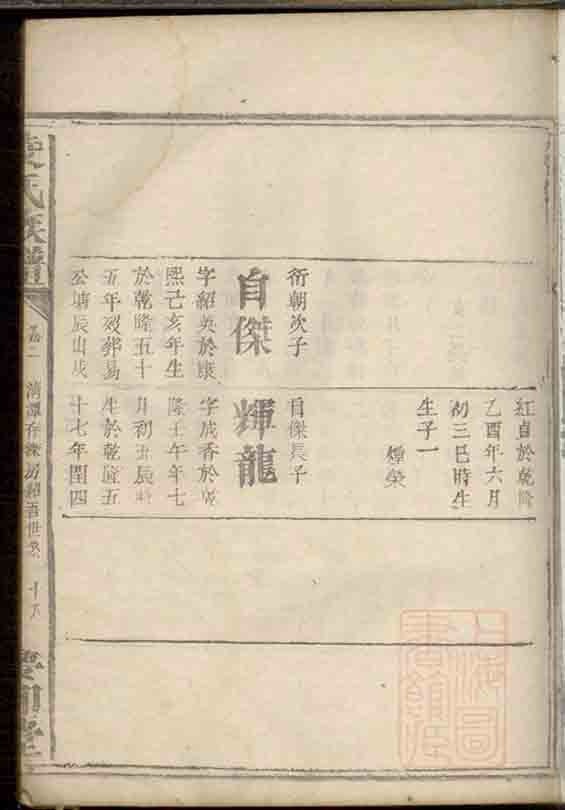 衍朝次子
自傑
字紹英於康
熙己亥年生
於乾隆五十
五年歿葬易
公塘辰山戌
紅貞於乾隆
乙酉年六月
初三巳時生
生子一
煙榮
自傑長子
輝龍
字成香於乾
隆壬午年七
月初五辰時
生於乾隆五
十七年閏四
氏族譜
卷二
上海圖書館藏